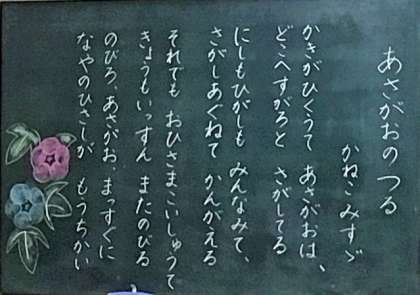 あさがおのつる
かねこみすゞ
かきがひくうて　あさがおは、
どこへすがろと　さがしてる
にしもひがしも　みんなみて、
さがしあぐねて　かんがえる
それでも　おひさまこいしゅうて
きょうもいっすん　またのびる
のびろ、あさがお、まっすぐに
なやのひさしが　もうちかい